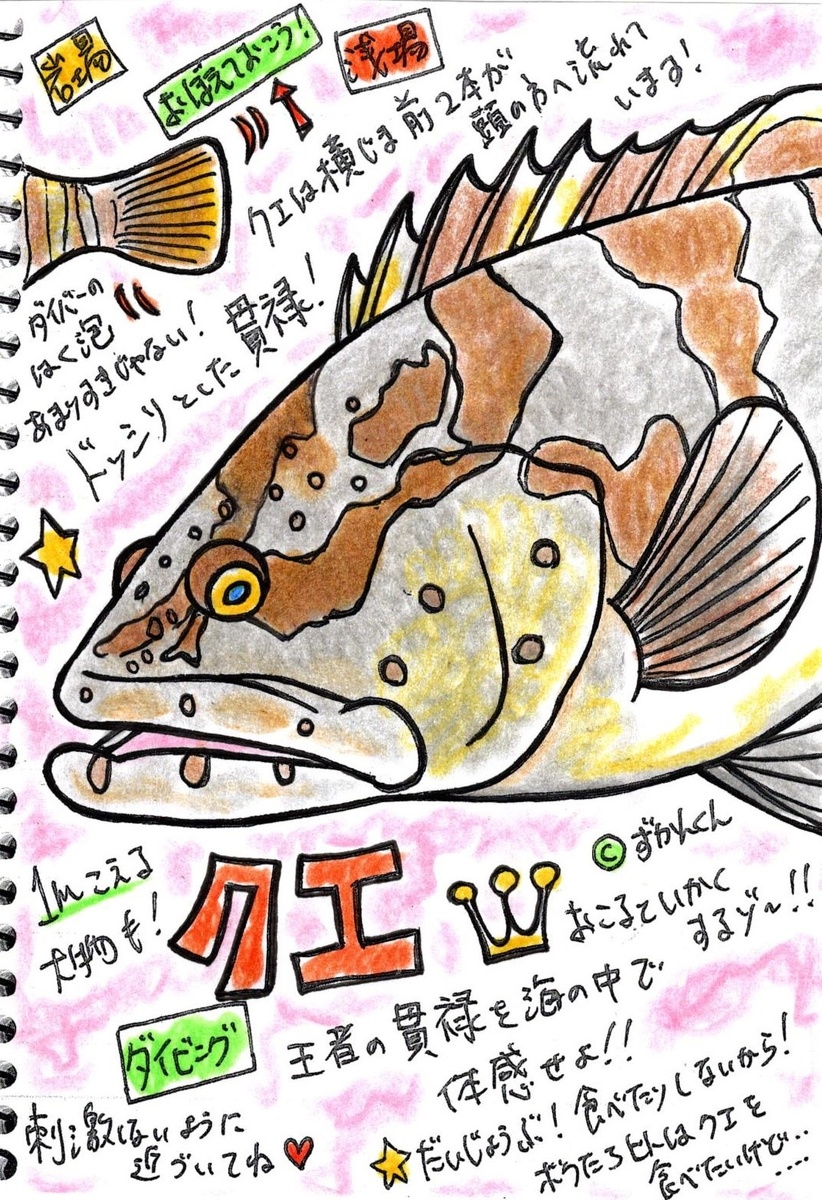 岩場
おぼえておこう!
浅場
クエは横じま前2本が
頭の方へ流れて
います!
ダイバーの
はく泡
あまりすきじゃない!
ドッシリとした貫禄!
©ずかんくん
1mこえる
大物も!
クエ
おこるといかく
するゾ〜!!
ダイビング
王者の貫禄を海の中で
体感せよ!!
刺激しないように
近づいてね
だいじょうぶ!食べたりしないから!
ボクたちヒトはクエを
食べたいけど…